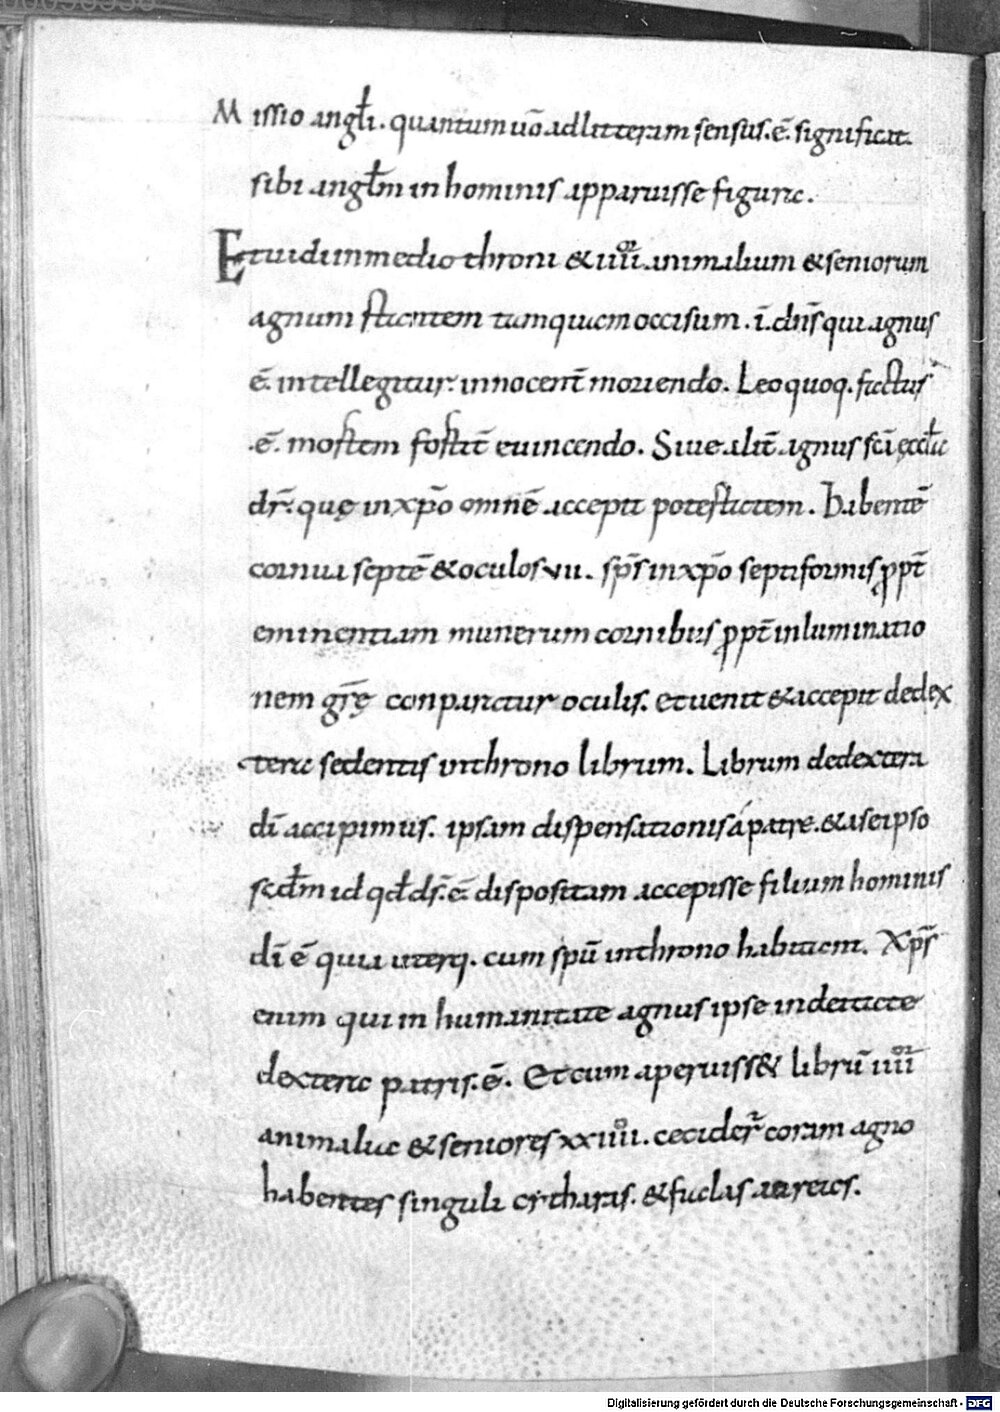 Missio angłi. quantum uō ad litteram sensus .ē. significat
sibi angłm in hominis apparuisse figura.
Et uidi in medio throni & iiii animalium & seniorum
agnum stantem tamquam occisum .ī. dn̄s qui agnus
ē intellegitur innocent̄ moriendo. Leo quoq. factus
.ē. mortem fortit̄ euincendo. Siue alit̄ agnus scī ęccłae
dr̄. quę in xp̄o omnē accepit potestatem. Habentē
cornua septē & oculos vii. sp̄s in xp̄o septiformis ꝓpt̄
eminentiam munerum cornibus ꝓpt̄ inluminatio
nem gr̄ę conparatur oculis. et uenit & accepit de dex
tera sedentis in throno librum. Librum de dextera
dī accipimus. ipsam dispensationis á patre. & a se ipso
scdm̄ id qđ ds̄ .ē. dispositam accepisse filium hominis
dī ē quia uterq. cum spū in throno habitant. Xp̄s
enim qui in humanitate agnus ipse in deitate
dextera patris .ē. Et cum aperuiss& librū iiii
animalia & seniores xxiiii. cecider̄ coram agno
habentes singuli cytharas. & fialas aureas.
Digitalisierung gefördert durch die Deutsche Forschungsgemeinschaft - DFG